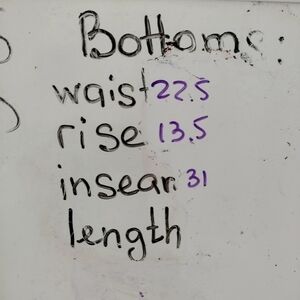 Bottoms:
waist 22.5
rise 13.5
inseam 31
length